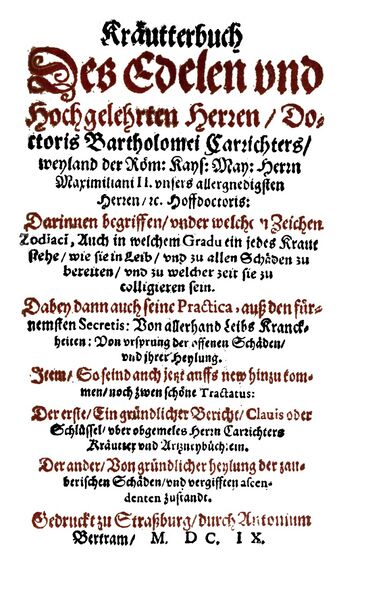 Kräutterbuch
Des Edelen vnd
Hochgelehrten Herren / Do-
ctoris Bartholomei Carrichters /
weyland der Röm: Kays: May: Herrn
Maximiliani II. vnsers allergnedigsten
Herren / ꝛc. Hoffdoctoris:
Darinnen begriffen / vnder welchen Zeichen
Zodiaci, Auch in welchem Gradu ein jedes Kraut
stehe / wie sie in Leib / vnd zu allen Schäden zu
bereiten / vnd zu welcher zeit sie zu
colligieren sein.
Dabey dann auch seine Practica, auß den für-
nemsten Secretis: Von allerhand Leibs Kranck-
heiten: Von vrsprung der offenen Schäden /
vnd jhrer Heylung.
Item / So seind auch jetzt auffs new hinzu kom-
men / noch zwen schöne Tractatus:
Der erste / Ein gründlicher Bericht / Clauis oder
Schlüssel / vber obgemeles Herrn Carrichters
Kräutter vnd Artzneybüchlein.
Der ander / Von gründlicher heylung der zau-
berischen Schäden / vnd vergifften ascen-
denten zustandt.
Gedruckt zu Straßburg / durch Antonium
Bertram / M. D C. I X.